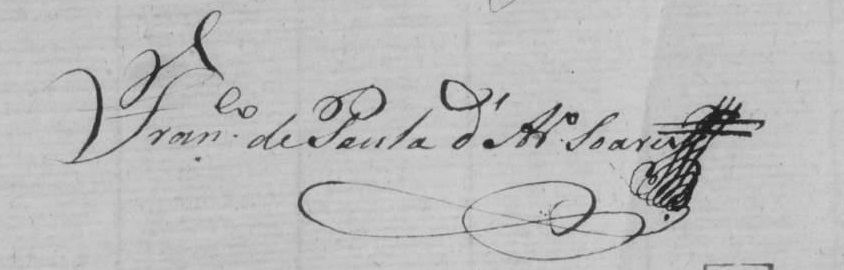 Fran.co de Paula d' Al.o Soares